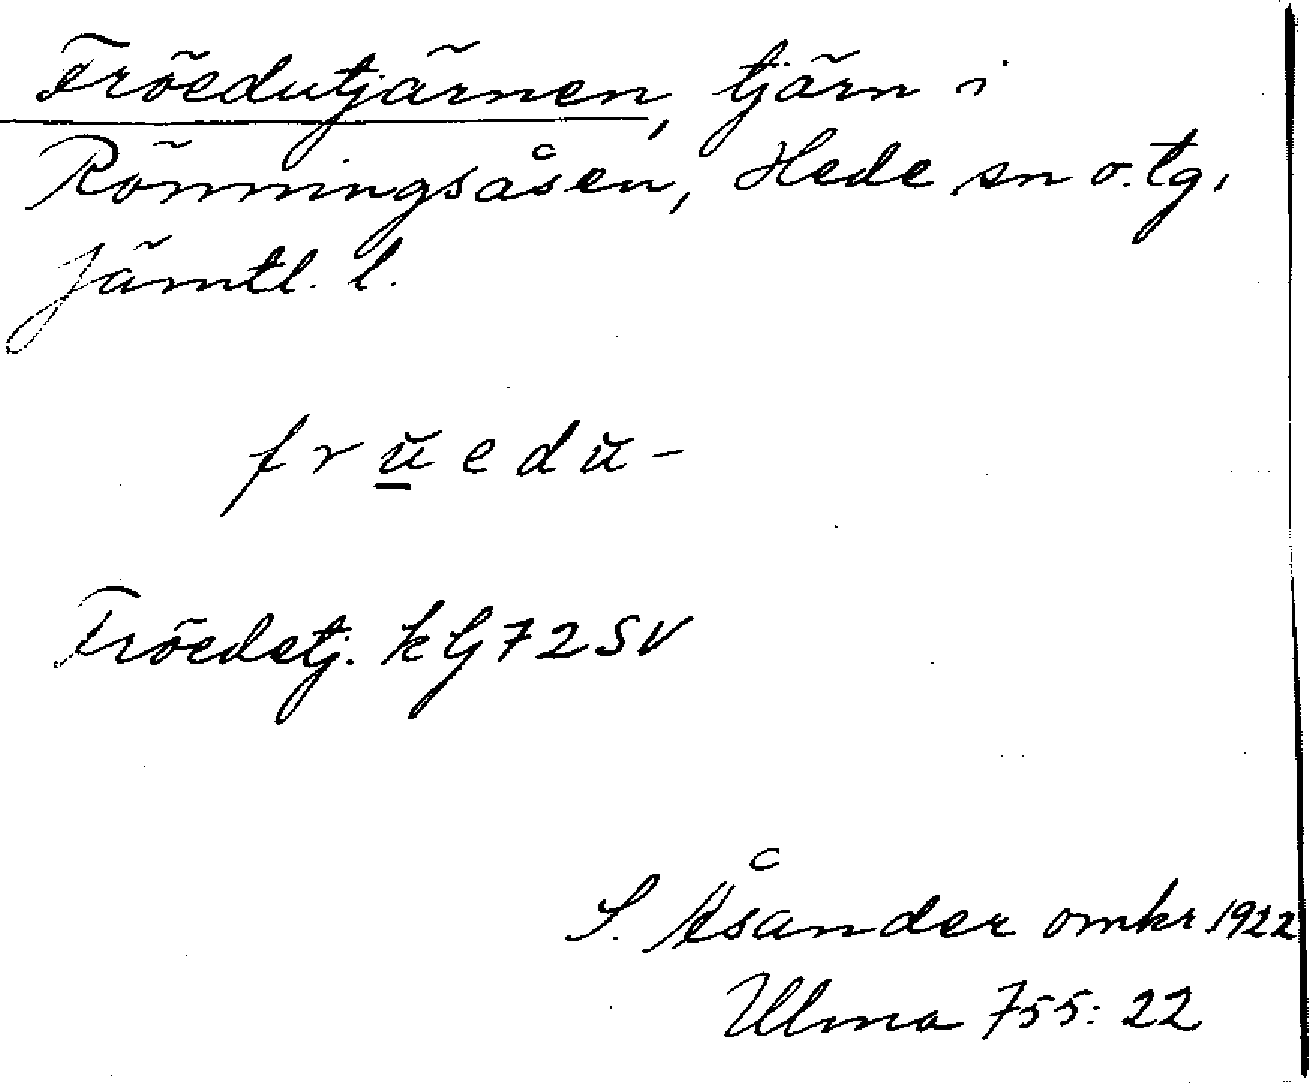 Fröedutjärnen, tjärn i
Rönningsåsen, Hede sn o. tg,
Jämtl. l.
frŭedŭ-
Fröedetj. kG72SV
S. Åsander omkr 1922
Ulma 755:22